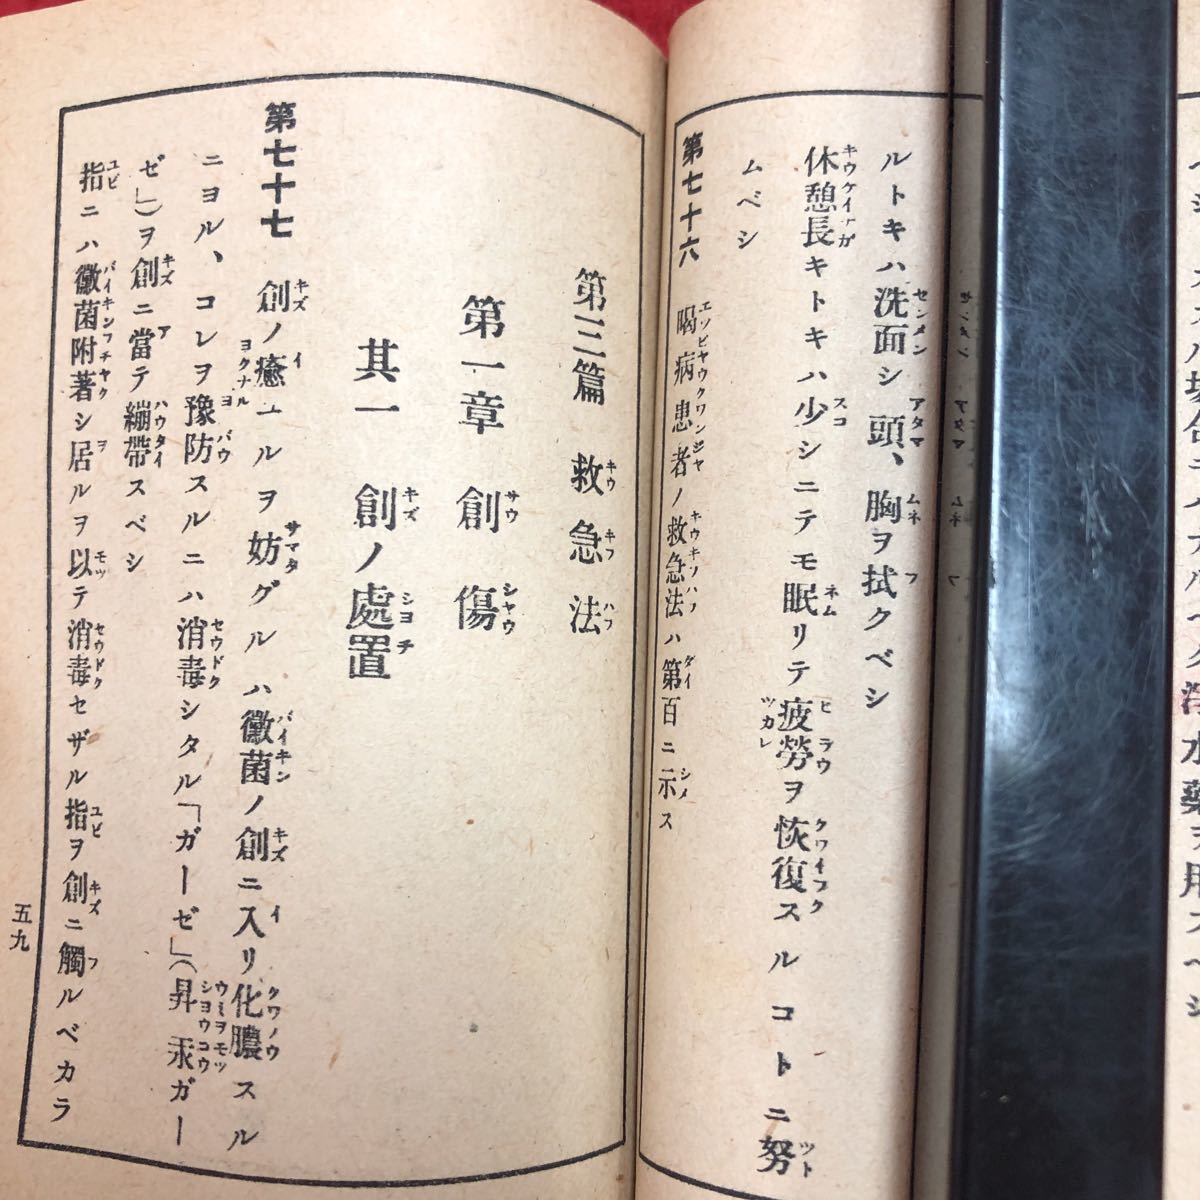 ルトキハ洗面シ頭、胸ヲ拭クベシ
休憩長キトキハ少シニテモ眠リテ疲勞ヲ恢復スルコトニ努
ムベシ
第七十六 暍病患者ノ救急法ハ第百ニ示ス
第三篇 救急法
第一章 創傷
其一 創ノ處置
第七十七 創ノ癒ユルヲ妨グルハ黴菌ノ創ニ入リ化膿スル
ニヨル、コレヲ豫防スルニハ消毒シタル「ガーゼ」(昇汞ガー
ゼ」)ヲ創ニ當テ繃帶スベシ
指ニハ黴菌附著シ居ルヲ以テ消毒セザル指ヲ創ニ觸ルベカラ
五九